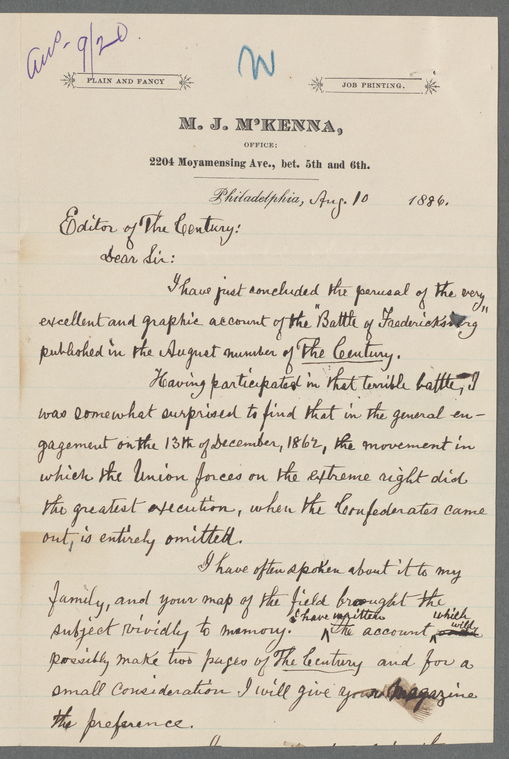 ans- 9/20
W
PLAIN AND FANCY
JOB PRINTING.
M. J. M'KENNA,
OFFICE:
2204 Moyamensing Ave., bet. 5th and 6th.
Philadelphia, Aug. 10 1886.
Editor of The Century:
Dear Sir:
I have just concluded the perusal of the very
excellent and graphic account of the "Battle of Fredericksburg"
published in the August number of The Century.
Having participated in that terrible battle, I
was somewhat surprised to find that in the general en-
gagement on the 13th of December, 1862, the movement in
which the Union forces on the extreme right did
the greatest execution, when the Confederates came
out, is entirely omitted.
I have often spoken about it to my
family, and your map of the field brought the
subject vividly to memory. I have written the account which will
possibly make two pages of The Century and for a
small consideration I will give your magazine
the preference.